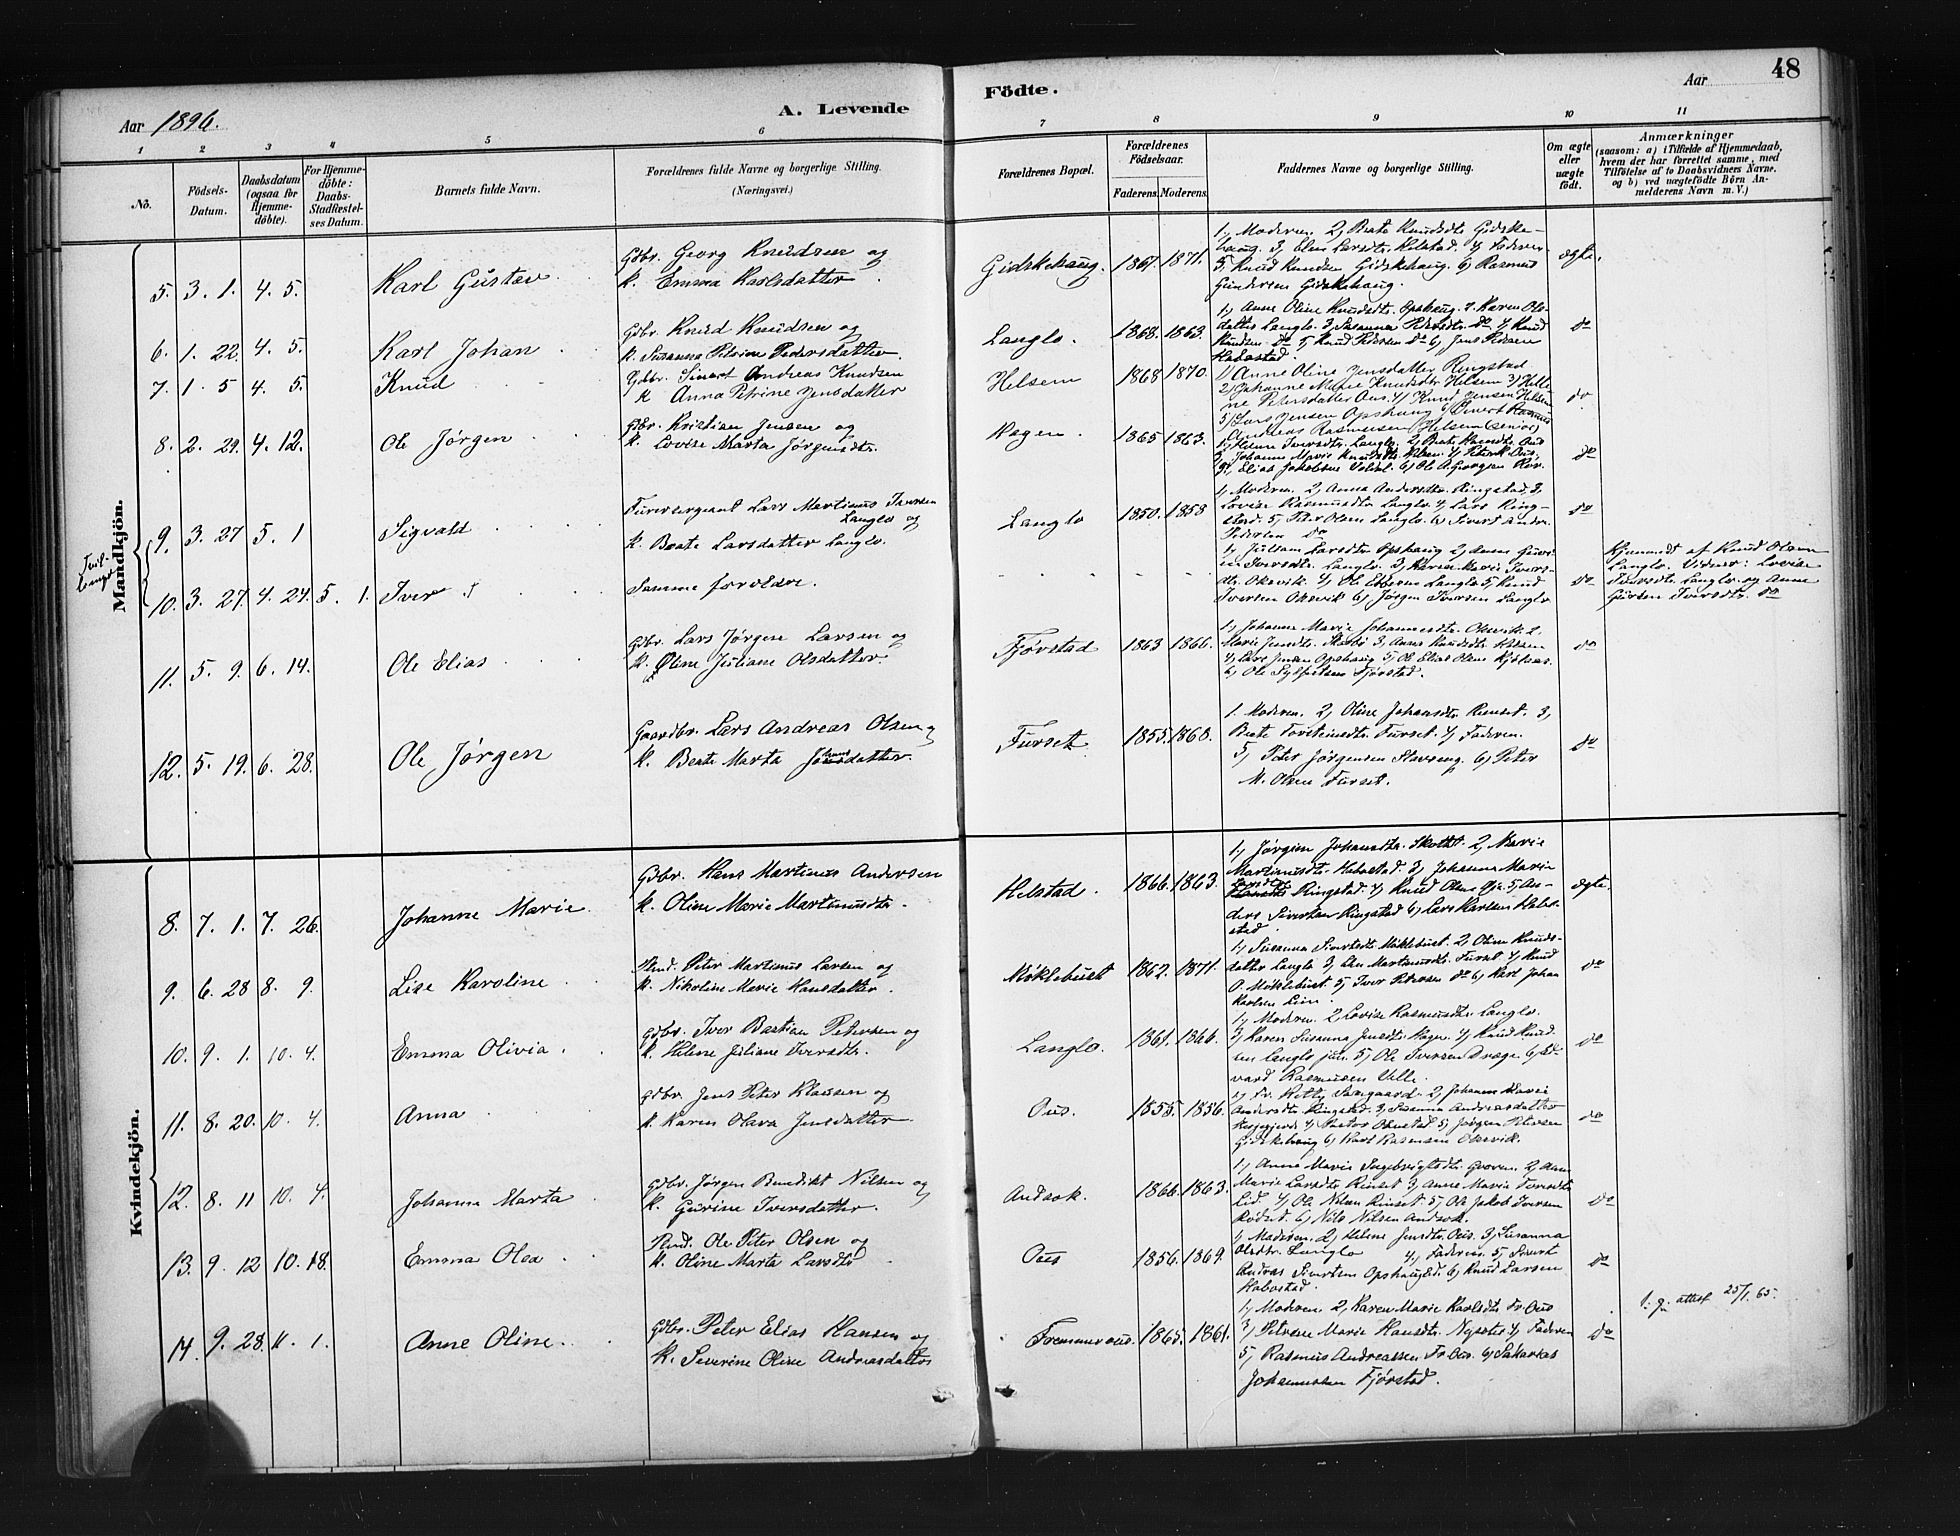 48
Aar 1896.
A. Levende
Födte.
Aar
1 2 3 4 5 6 7 8 9 10 11
No.
Födsels-Datum.
Daabsdatum (ogsaa for Hjemmedöbte).
For Hjemmedöbte: Daabs-Stadfæstelses Datum.
Barnets fulde Navn.
Forældrenes fulde Navne og borgerlige Stilling. (Næringsvei.)
Forældrenes Bopæl.
Forældrenes Födselsaar.
Faderens. Moderens.
Faddernes Navne og borgerlige Stilling.
Om ægte eller uægte födt.
Anmærkninger
(saasom: a) i Tilfælde af Hjemmedaab, hvem der har forrettet samme, med Tilföielse af to Daabsvidners Navne, og b) ved uægtefödte Börn Anmelderens Navn m. V.)
Mandkjön.
5. 3. 1. 4. 5. Karl Gustav
Gdbr. Georg Knudsen og
K. Emma Karlsdatter
Gidskehaug. 1867. 1871.
1, Moderen. 2, Beate Knudsdt. Gidske-
haug. 3, Elen Larsdt. Helstad. 4, Faderen
5, Knud Knudsen Gidskehaug. 6, Rasmus
Gidskehaug.
ægte.
6. 1. 22. 4. 5. Karl Johan
Gdbr. Knud Knudsen og
K. Susanna Petrine Pedersdatter.
Langlo. 1868. 1863.
1, Anne Oline Knudsdt. Opshaug. 2, Karen Ols-
datter Langlo. 3, Susanna Pedersdt. do 4, Knud
Knudsen do 5, Knud Pedersen do 6, Jens Pedersen
Habostad.
do
7. 1 5 4. 5. Knud
Gdbr. Sivert Andreas Knudsen
K Anna Petrine Jensdatter
Helsem 1868 1870.
1) Anne Oline Jensdatter Ringstad
2) Johanne Marie Knudsdtr Helsem 3)
Petersdatter Ous. 4) Knud Jensen Helsem
5) Lars Jensen Opshaug 6)
Andreas Rasmussen Helsem (senior)
do
8. 2. 29. 4. 12. Ole Jørgen
Gdbr. Kristian Jensen og
K. Lovise Marta Jørgensdtr.
Hagen. 1865 1863.
1, Helene Iversdtr. Langlo. 2, Beate
3, Johanne Marie Knudsdtr. Helsem. 4, Peter Ous.
5, Elias Jakobsen 6, Ole A.
do
Tvil-
linger
9. 3. 27 5. 1 Sigvald
Furersergeant Lars Martinus Iversen
Langlo og
K. Beate Larsdatter Langlo.
Langlo 1850. 1858
1, Moderen. 2, Anna Andersdtr. Ringstad, 3,
Lovise Rasmusdtr Langlo. 4, Lars Ring-
stad. 5, Peter Olsen Langlo. 6, Sivert Andr.
Pedersen do
do
10. 3. 27. 4. 24. 5. 1. Iver
Samme forældre.
Larsdtr Opshaug 2, Anna
Iversdtr. Langlo. 3, Karen Marie Ivers-
dtr. Oksvik. 4, Ole Langlo 5, Knud
Iversen Oksvik 6, Jørgen Iversen Langlo.
do
Hjemmedt. af Knud Olsen
Langlo. Vidner: Lovise
Iversdtr. Langlo og Anne
Iversdtr. do
11. 5. 9. 6. 14. Ole Elias
Gdbr. Lars Jørgen Larsen og
K. Oline Juliane Olsdatter.
Fjørstad 1863 1866.
1, Johanne Marie Johannesdtr. Oksvik. 2,
Marie Jensdtr. 3, Anne Knudsdtr. Helsem
4, Lars Jensen Opshaug 5, Ole Elias Olsen
6, Ole Fjørstad.
do
12. 5. 19. 6. 28. Ole Jørgen
Gaardbr. Lars Andreas Olsen og
K. Beate Marta
Furset 1855. 1860.
1. Moderen. 2, Oline Johansdtr. Rinset. 3,
Beate Furset. 4, Faderen.
5, Peter Jørgensen 6, Peter
M. Olsen Furset.
do
Kvindekjön.
8. 7. 1. 7. 26. Johanne Marie.
Gdbr. Hans Martinus Andersen
K. Oline Marie Martinusdtr.
Helstad. 1866. 1863.
1, Jørgine Johansdtr. 2, Marie
Martinusdtr. Habostad. 3, Johanna Marie
Ringstad. 4, Knud Olsen 5, An-
ders Sivertsen Ringstad 6, Lars Karlsen
stad.
ægte.
9. 6. 28 8. 9. Lise Karoline.
Peter Martinus Larsen og
K. Nikoline Marie Hansdatter.
Møklebust 1862. 1871.
1, Susanna Sivertsdtr. Møklebust. 2, Oline Knuds-
datter Langlo 3, Martinusdtr. Furset. 4, Knud
O. Møklebust. 5, Iver Petersen do 6, Karl Johan
Karlsen
do
10. 9. 1. 10. 4. Emma Olivia.
Gdbr. Iver Bastian Petersen og
K. Helene Juliane Iversdtr.
Langlo. 1861. 1866.
1, Moderen. 2, Lovise Rasmusdtr. Langlo.
3, Karen Susanna Jensdtr. Hagen. 4, Knud Knud-
sen Langlo jun. 5, Ole Iversen Drage. 6, Ed-
vard Rasmussen Velle.
do
11. 8. 20. 10. 4. Anna
Gdbr. Jens Peter Klausen og
K. Karen Olava Jensdatter.
Ous. 1855. 1856.
1, Fr. 2, Johanne Marie
Andersdtr. Ringstad. 3, Susanna Andreasdatter
4, Pastor 5, Jørgen Petersen
Gidskehaug 6, Karl Rasmusen Oksvik.
do
12. 8. 11 10. 4. Johanna Marta
Gdbr. Jørgen Benedikt Nilsen og
K. Gurine Iversdatter.
Andsok. 1866. 1863.
1, Anne Marie 2, Anne
Marie Larsdtr. Rinset. 3, Anne Marie
4, Ole Nilsen Rinset. 5, Ole Jakob Iversen
6, Nils Nilsen Andsok.
do
13. 9. 12 10. 18. Emma Olea
Ole Peter Olsen og
K. Oline Marta Larsdtr
Ous 1856. 1869.
1, Moderen. 2, Helene Jensdtr. Ous. 3, Susanna
Olsdtr. Langlo 4, Faderen. 5, Sivert
Andreas Sivertsen 6, Knud Larsen
Habostad.
do
14. 9. 28. 11. 1. Anne Oline.
Gdbr. Peter Elias Hansen og
K. Severine Oline Andreasdatter
Fremmerous. 1865. 1861.
1, Moderen. 2, Karen Marie Karlsdtr. Fr. Ous
3, Petrine Marie Hansdtr. 4, Faderen
5, Rasmus Andreassen Fr. Ous. 6, Sakarias
Johannessen Fjørstad.
do
attest 25/1. 65.